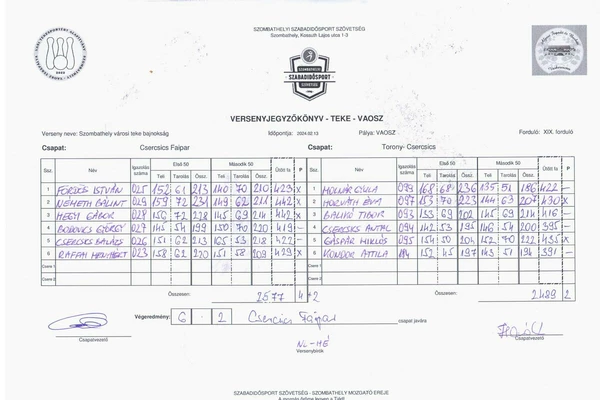 SZOMBATHELYI SZABADIDŐSPORT SZÖVETSÉG
Szombathely, Kossuth Lajos utca 1-3
SZOMBATHELYI
SZABADIDŐSPORT
SZÖVETSÉG
VERSENYJEGYZŐKÖNYV - TEKE - VAOSZ
Verseny neve: Szombathely városi teke bajnokság Időpontja: 2024.02.13 Pálya: VAOSZ Forduló: XIX. forduló
Csapat: Csercsics Faipar Csapat: Torony- Csercsics
Ssz. Név Igazolás száma Első 50 Második 50 Ütött fa P Ssz. Név Igazolás száma Első 50 Második 50 Ütött fa P
Teli Tarolás Össz. Teli Tarolás Össz. Teli Tarolás Össz. Teli Tarolás Össz.
1 025 152 61 213 140 70 210 423 X 1 MOLNÁR GYULA 099 168 68 236 135 51 186 422 –
2 NÉMETH BÁLINT 029 159 72 231 149 62 211 442 X 2 HORVÁTH ÉVA 097 153 70 223 144 63 207 430 X
3 HEGYI GÁBOR 028 156 72 228 145 69 214 442 X 3 BALIKÓ TIBOR 093 133 69 202 145 69 214 416 –
4 GYÖRGY 027 145 54 199 150 70 220 419 – 4 CSERCSICS ANTAL 094 142 53 195 146 54 200 395 –
5 CSERCSICS BALÁZS 026 151 62 213 165 53 218 – 5 GÁSPÁR MIKLÓS 095 154 50 204 152 70 222 X
6 RAFFAI 023 158 62 220 151 58 209 429 X 6 KONDOR ATTILA 152 45 197 143 51 194 391 –
Csere 1 Csere 1
Csere 2 Csere 2
Összesen: 2577 4+2 Összesen: 2489 2
Végeredmény: 6 . 2 Csercsics Faipar csapat javára
Csapatvezető Csapatvezető
NL-HÉ
Versenybírók
SZABADIDŐSPORT SZÖVETSÉG - SZOMBATHELY MOZGATÓ EREJE